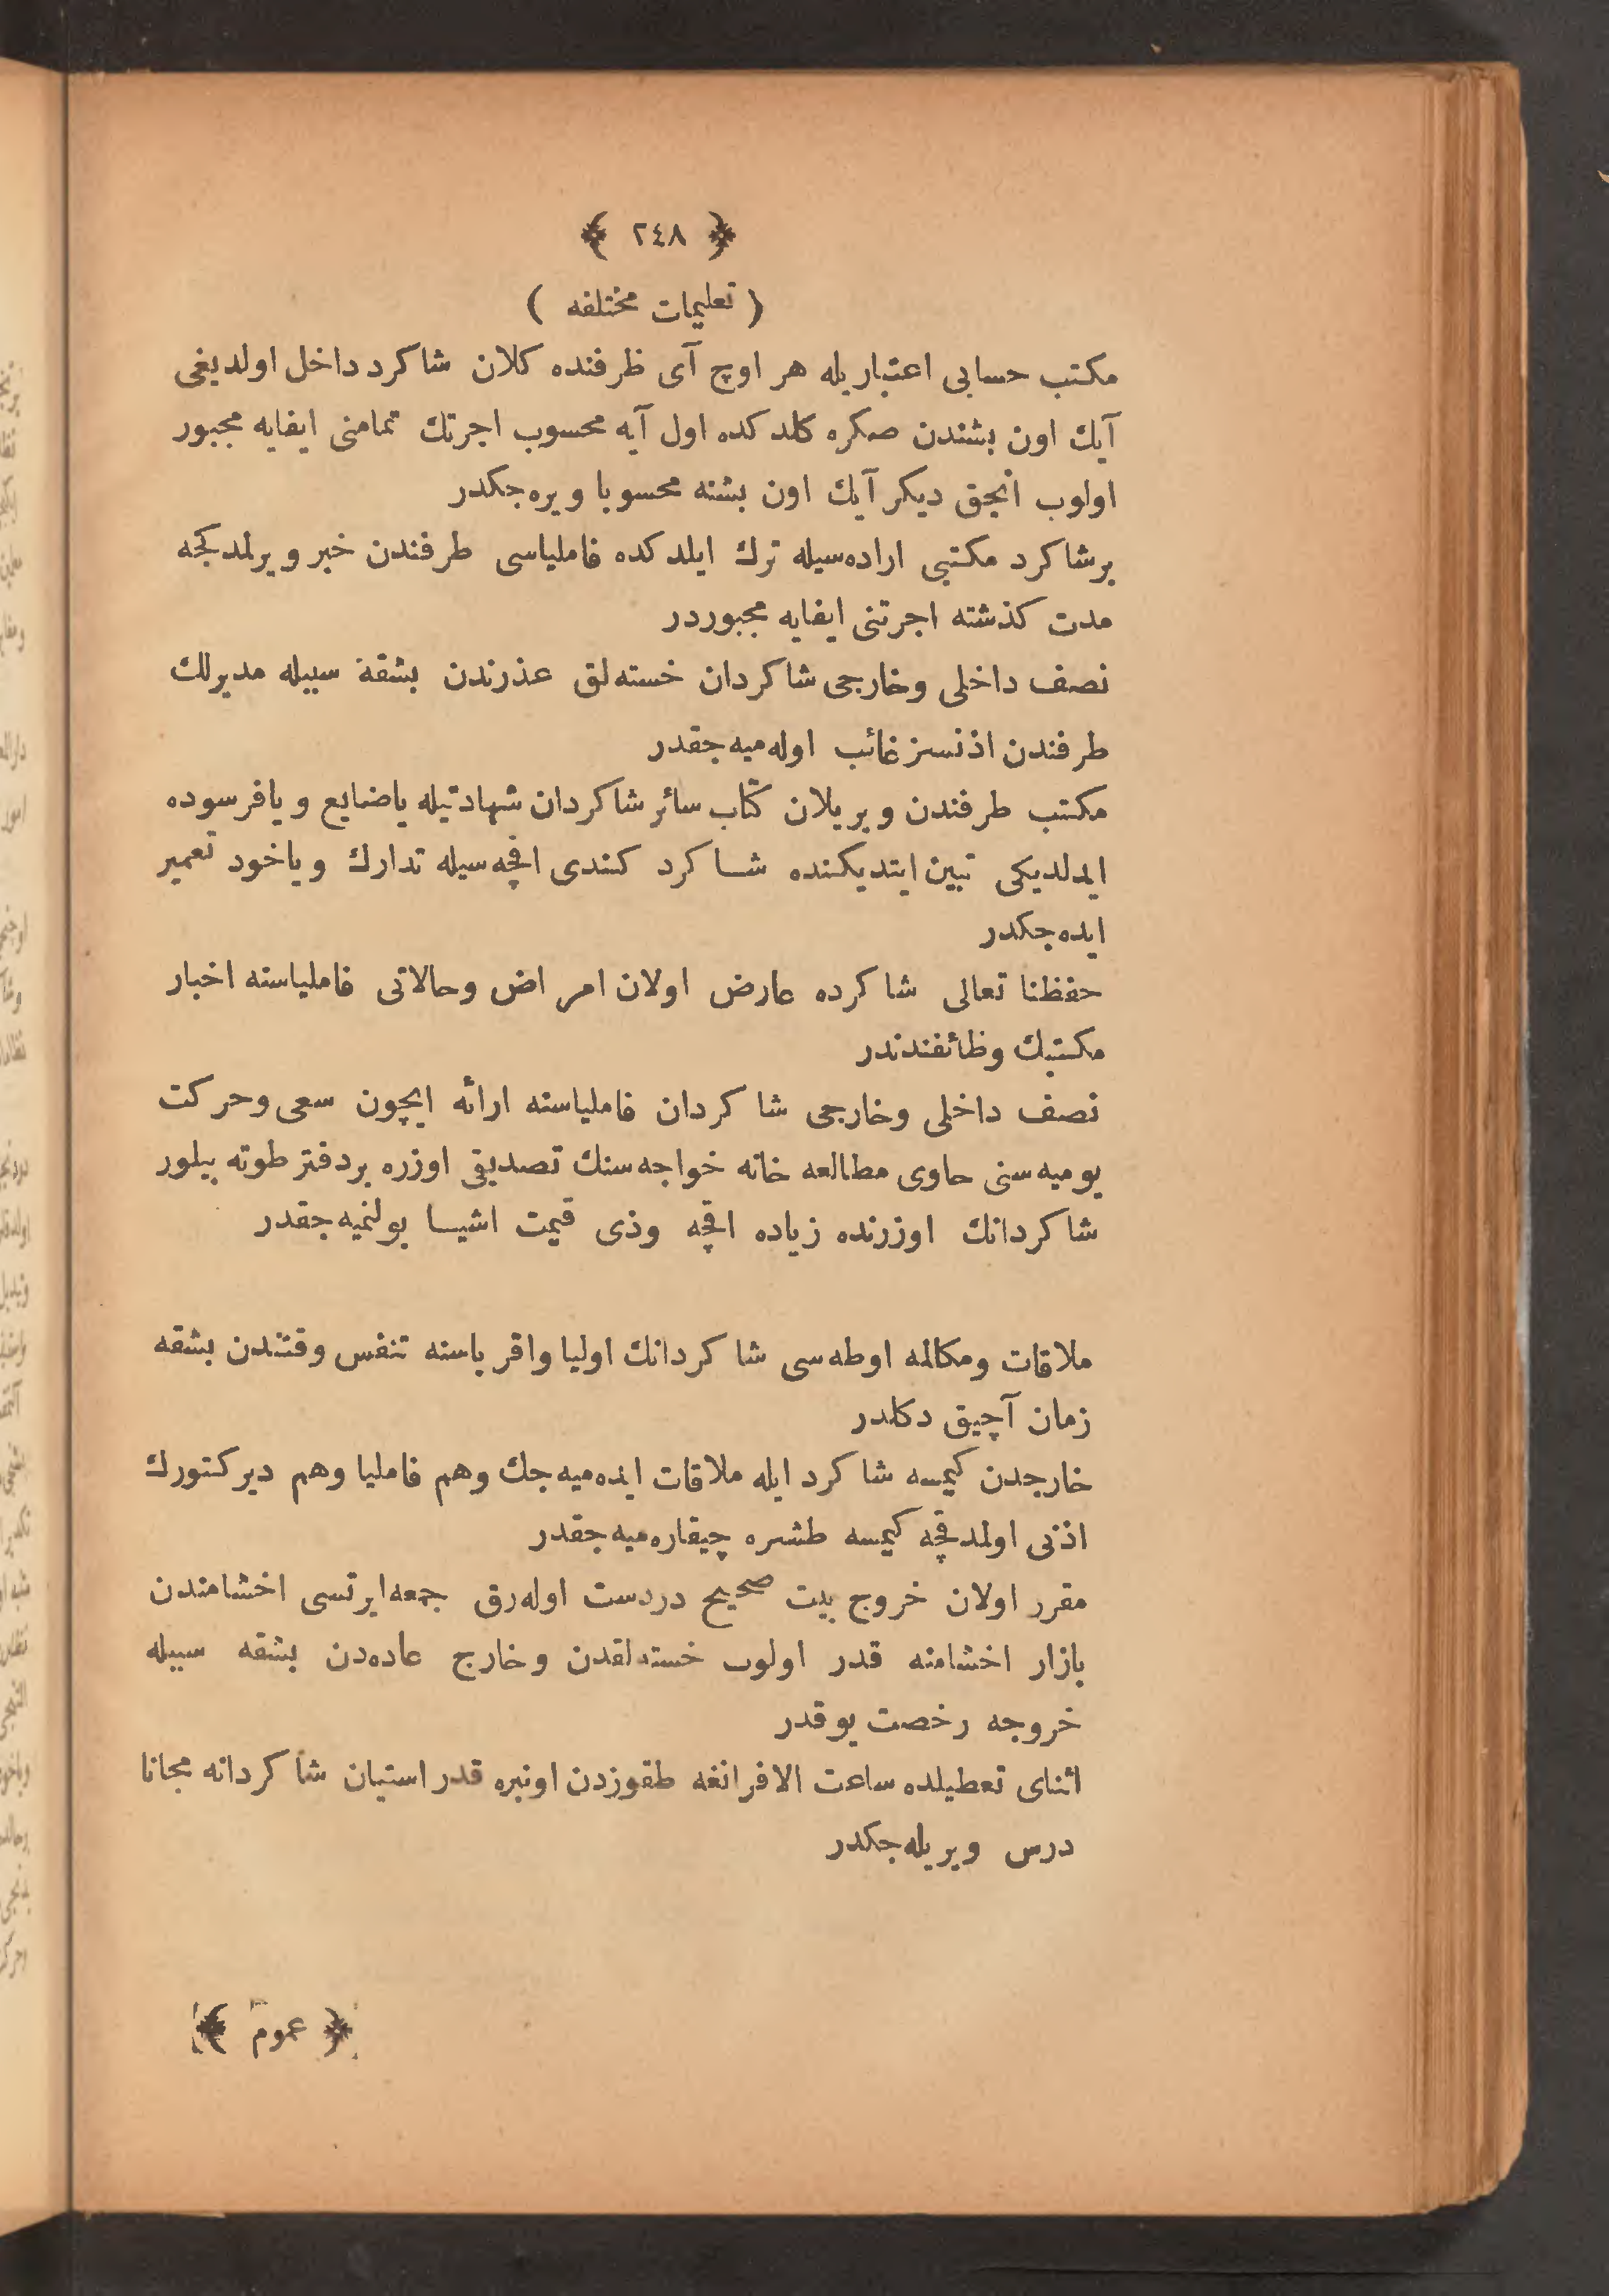 ﴿ ٢٤٨ ﴾
( تعلیمات مختلفه )
مكتب حسابی اعتباریله هر اوچ آی ظرفنده كلان شاكرد داخل اولدیغی
آیك اون بشندن صكره كلدكده اول آیه محسوب اجرتك تمامنی ایفایه مجبور
اولوب انجق دیكر آیك اون بشنه محسوبا ویره جكدر
برشاكرد مكتبی اراده سیله ترك ایلدكده فاملیاسی طرفندن خبر ویرلدكجه
مدت كذشته اجرتنی ایفایه مجبوردر
نصف داخلی وخارجی شاكردان خسته لق عذرندن بشقه سبیله مدیرلك
طرفندن اذنسز غائب اوله میه جقدر
مكتب طرفندن ویریلان كتاب سائر شاكردان شهادتیله یاضایع ویافرسوده
ایدلدیكی تبین ایتدیكنده شاكرد كندی اقچه سیله تدارك ویاخود تعمیر
ایده جكدر
حفظنا تعالی شاكرده عارض اولان امراض وحالاتی فاملیاسنه اخبار
مكتبك وظائفندندر
نصف داخلی وخارجی شاكردان فاملیاسنه ارائه ایچون سعی وحركت
یومیه سنی حاوی مطالعه خانه خواجه سنك تصدیقی اوزره بردفتر طوته بیلور
شاكردانك اوزرنده زیاده اقچه وذی قیمت اشیا بولنمیه جقدر
ملاقات ومكالمه اوطه سی شاكردانك اولیا واقرباسنه تنفس وقتندن بشقه
زمان آچیق دكلدر
خارجدن كیمسه شاكرد ایله ملاقات ایده میه جك وهم فاملیا وهم دیركتورك
اذنی اولمدقچه كیمسه طشره چیقاره میه جقدر
مقرر اولان خروج بیت صحیح دردست اوله رق جمعه ایرتسی اخشامندن
بازار اخشامنه قدر اولوب خسته لقدن وخارج عاده دن بشقه سبیله
خروجه رخصت یوقدر
اثنای تعطیلده ساعت الافرانغه طقوزدن اونبره قدر استیان شاكردانه مجانا
درس ویریله جكدر
﴿ عموم ﴾